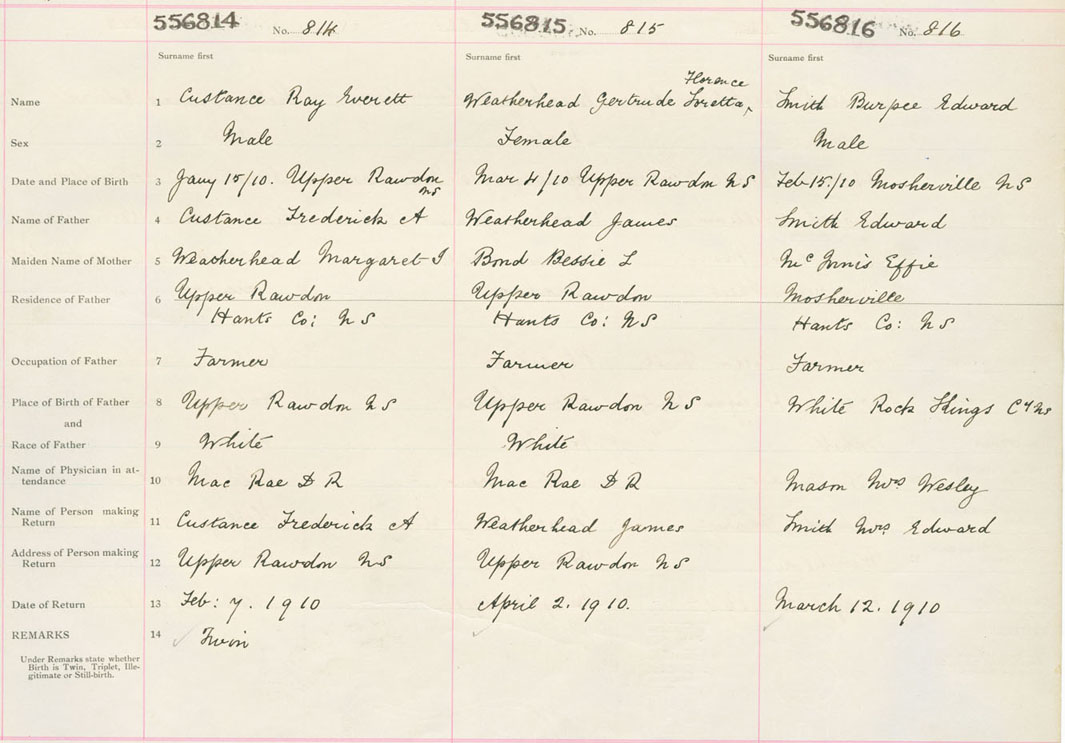 556814 No. 814 556815 No. 815 556816 No. 816
Surname first Surname first Surname first
Florence
Name 1 Custance Ray Everett Weatherhead Gertrude Loretta Smith Burpee Edward
Sex 2 Male Female Male
Date and Place of Birth 3 Jany 15/10. Upper Rawdon NS Mar 4/10 Upper Rawdon NS Feb 15./10 Mosherville NS
Name of Father 4 Custance Frederick A Weatherhead James Smith Edward
Maiden Name of Mother 5 Weatherhead Margaret I Bond Bessie L McInnis Effie
Residence of Father 6 Upper Rawdon Upper Rawdon Mosherville
Hants Co: NS Hants Co: NS Hants Co: NS
Occupation of Father 7 Farmer Farmer Farmer
Place of Birth of Father 8 Upper Rawdon NS Upper Rawdon NS White Rock Kings Cy NS
and
Race of Father 9 White White
Name of Physician in at-
tendance 10 Mac Rae D R Mac Rae D R Mason Mrs Wesley
Name of Person making
Return 11 Custance Frederick A Weatherhead James Smith Mrs. Edward
Address of Person making
Return 12 Upper Rawdon NS Upper Rawdon NS
Date of Return 13 Feb: 7. 1910 April 2. 1910. March 12. 1910
REMARKS 14 Twin
Under Remarks state whether
Birth is Twin, Triplet, Ille-
gitimate or Still-birth.